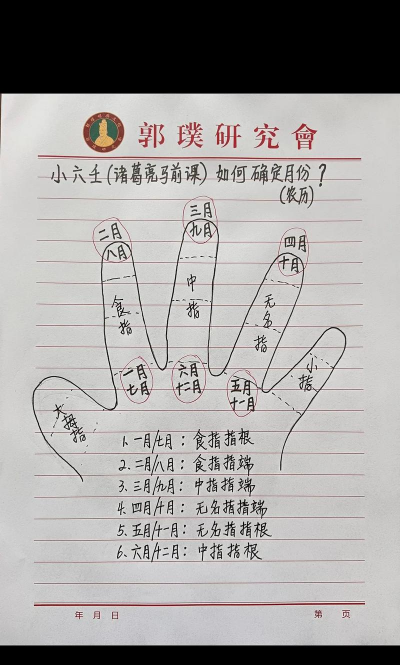 郭璞研究會
小六壬(诸葛亮马前课)如何确定月份?
(农历)
三月
九月
二月
八月
四月
十月
中指
食指
无名指
小指
大拇指
一月
七月
六月
十二月
五月
十一月
1.一月/七月:食指指根
2.二月/八月:食指指端
3.三月/九月:中指指端
4.四月/十月:无名指指端
5.五月/十一月:无名指指根
6.六月/十二月:中指指根
年 月 日
第 页